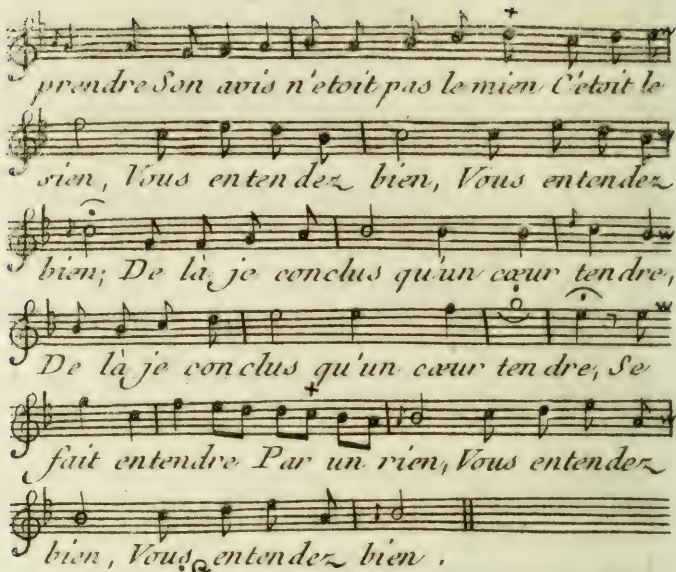 prendre Son avis n'etoit pas le mien C'étoit le
rien, Vous entendez bien, Vous entendez
bien; De là je conclus qu'un cœur tendre,
De là je conclus qu'un cœur tendre, Se
fait entendre Par un rien, Vous entendez
bien, Vous entendez bien.